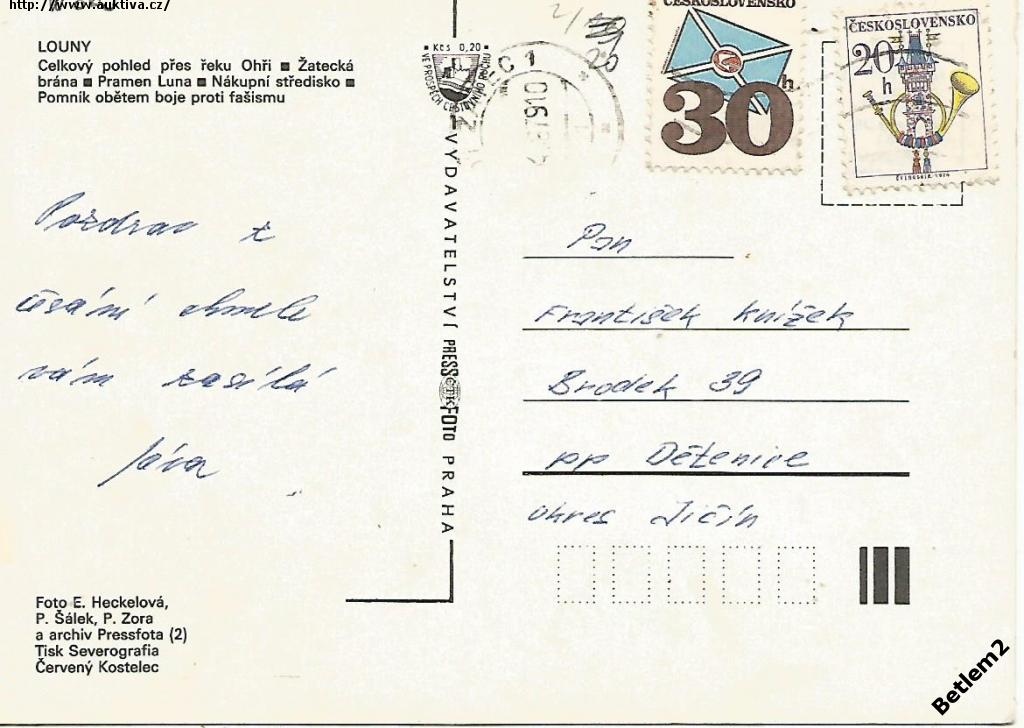 http://www.auktiva.cz/
LOUNY
Celkový pohled přes řeku Ohři ■ Žatecká
brána ■ Pramen Luna ■ Nákupní středisko ■
Pomník obětem boje proti fašismu
Pozdrav z
česání chmele
vám zasílá
Jára
Foto E. Heckelová,
P. Šálek, P. Zora
a archiv Pressfota (2)
Tisk Severografia
Červený Kostelec
Kčs 0,20
VE PROSPĚCH CESTOVNÍHO RUCHU
VYDAVATELSTVÍ PRESSFOTO PRAHA
ČTK
ČESKOSLOVENSKO
30 h
ČESKOSLOVENSKO
20 h
Pan
František Knížek
Brodek 39
pp Dětenice
okres Jičín
Betlem2